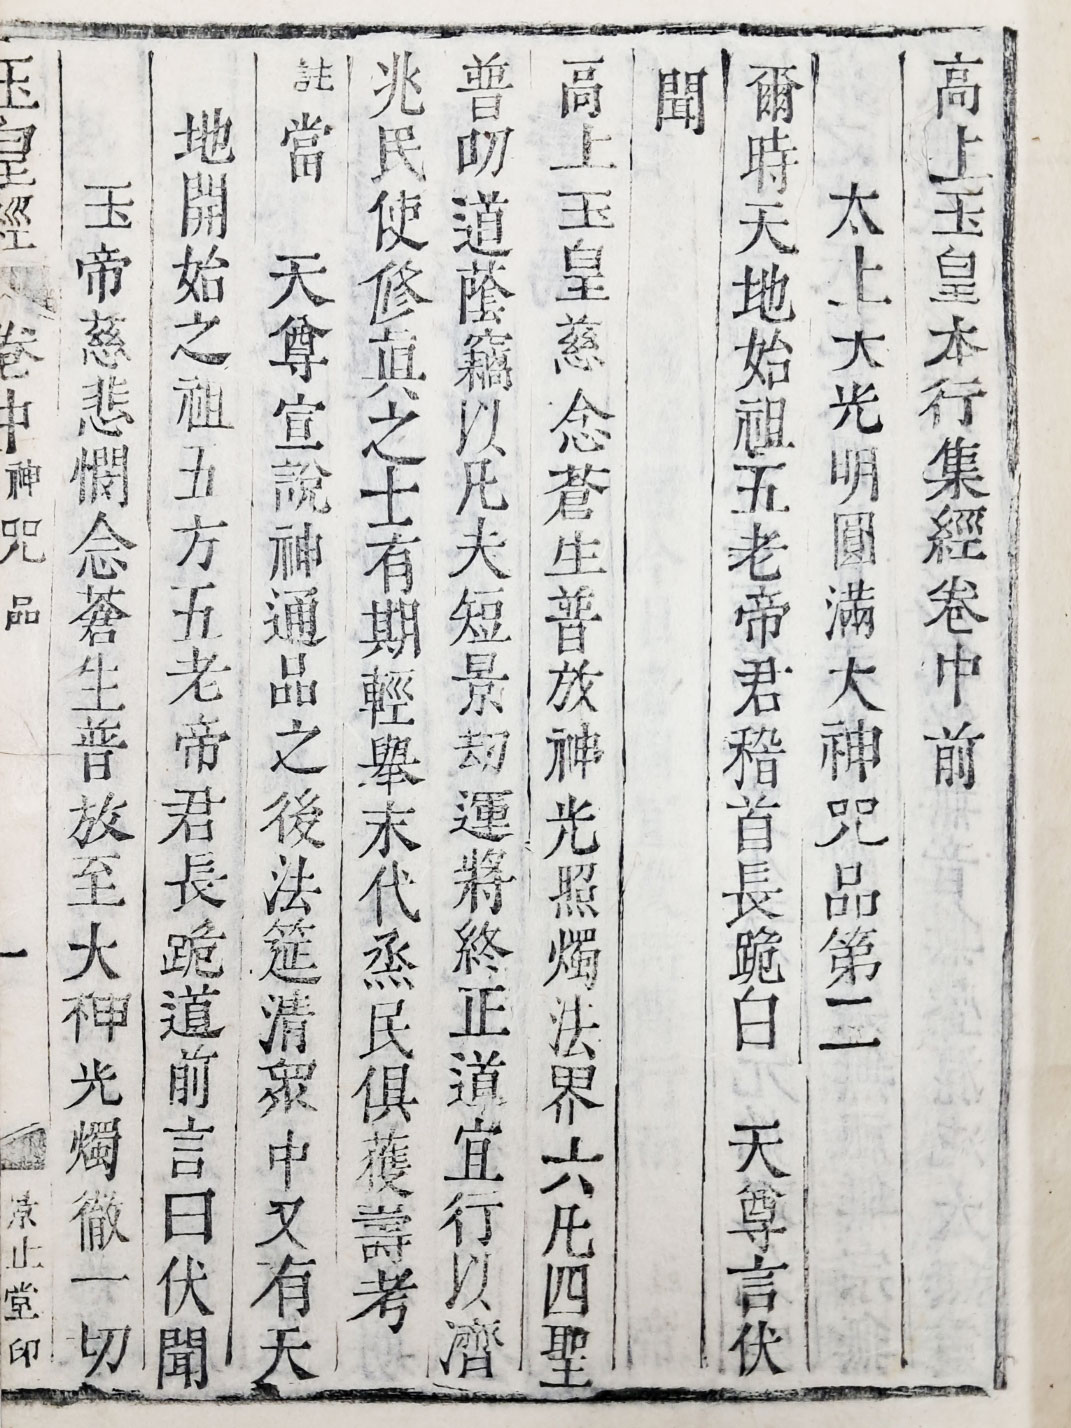 高上玉皇本行集經卷中前
太上大光明圓滿大神咒品第二
爾時天地始祖五老帝君稽首長跪白　天尊言伏
聞
高上玉皇慈念蒼生普放神光照燭法界六凡四聖
普叨道蔭竊以凡夫短景劫運將終正道宜行以濟
兆民使修真之士有期輕舉末代烝民俱獲壽考
註當　天尊宣說神通品之後法筵清衆中又有天
地開始之祖五方五老帝君長跪道前言曰伏聞
玉帝慈悲憫念蒼生普放至大神光燭徹一切
玉皇經　卷中神咒品　一　止堂印